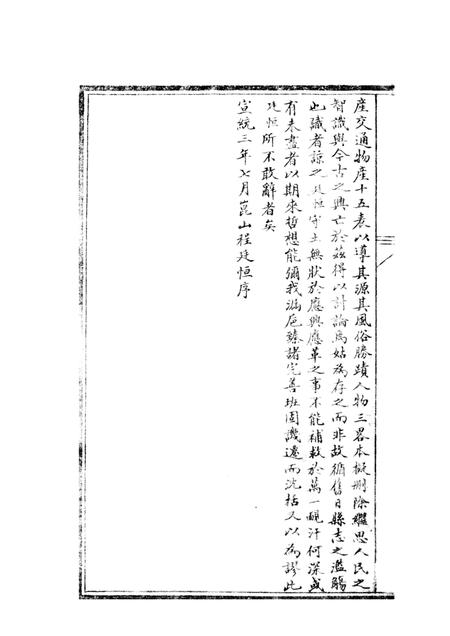 產交通物產十五表以導其源其風俗勝蹟人物三畧本擬刪除繼思人民之
智識與今古之興亡於茲得以討論焉姑為存之而非故循舊日縣志之濫觴
也識者諒之廷恒守土無狀於應興應革之事不能補救於萬一靦汗何深或
有未盡者以期來哲想能彌我漏巵臻諸完善班固譏遷而沈括又以為謬此
廷恒所不敢辭者矣
宣統三年七月崑山程廷恒序